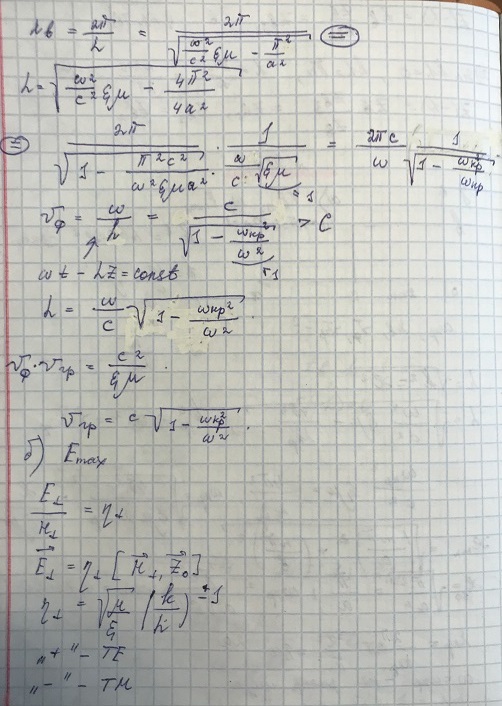 λв = 2π/h = 2π/√(ω²/c² εμ − π²/a²) (=)
h = √(ω²/c² εμ − 4π²/4a²)
(=) 2π/√(1 − π²c²/ω²εμa²) · 1/(ω/c · √εμ) = 2πc/ω · 1/√(1 − ωкр²/ωкр)
=1
vф = ω/h = c/√(1 − ωкр²/ω²) > C
<1
ωt − hz = const
h = ω/c √(1 − ωкр²/ω²).
vф · vгр = c²/εμ.
vгр = c √(1 − ωкр²/ω²).
б) Emax
E⊥/H⊥ = η⊥
E⃗⊥ = η⊥ [H⃗⊥, Z⃗₀]
η⊥ = √(μ/ε) (k/h)^±1
„+" – TE
„–" – TM